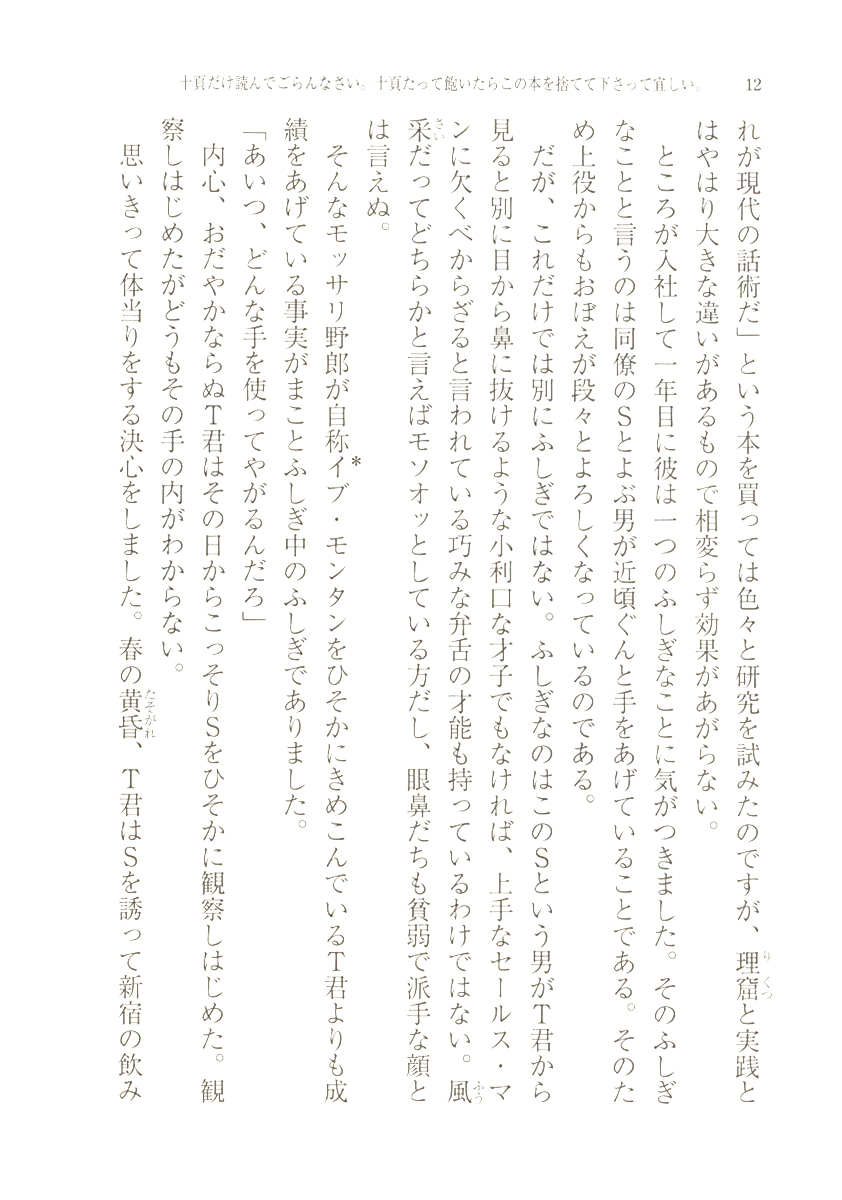 十頁だけ読んでごらんなさい。十頁たって飽いたらこの本を捨てて下さって宜しい。 12
れが現代の話術だ」という本を買っては色々と研究を試みたのですが、理窟と実践と
はやはり大きな違いがあるもので相変らず効果があがらない。
ところが入社して一年目に彼は一つのふしぎなことに気がつきました。そのふしぎ
なことと言うのは同僚のSとよぶ男が近頃ぐんと手をあげていることである。そのた
め上役からもおぼえが段々とよろしくなっているのである。
だが、これだけでは別にふしぎではない。ふしぎなのはこのSという男がT君から
見ると別に目から鼻に抜けるような小利口な才子でもなければ、上手なセールス・マ
ンに欠くべからざると言われている巧みな弁舌の才能も持っているわけではない。風
采だってどちらかと言えばモソオッとしている方だし、眼鼻だちも貧弱で派手な顔と
は言えぬ。
そんなモッサリ野郎が自称イブ・モンタンをひそかにきめこんでいるT君よりも成
績をあげている事実がまことふしぎ中のふしぎでありました。
「あいつ、どんな手を使ってやがるんだろ」
内心、おだやかならぬT君はその日からこっそりSをひそかに観察しはじめた。観
察しはじめたがどうもその手の内がわからない。
思いきって体当りをする決心をしました。春の黄昏、T君はSを誘って新宿の飲み
り くつ
ふう
さい
*
たそがれ